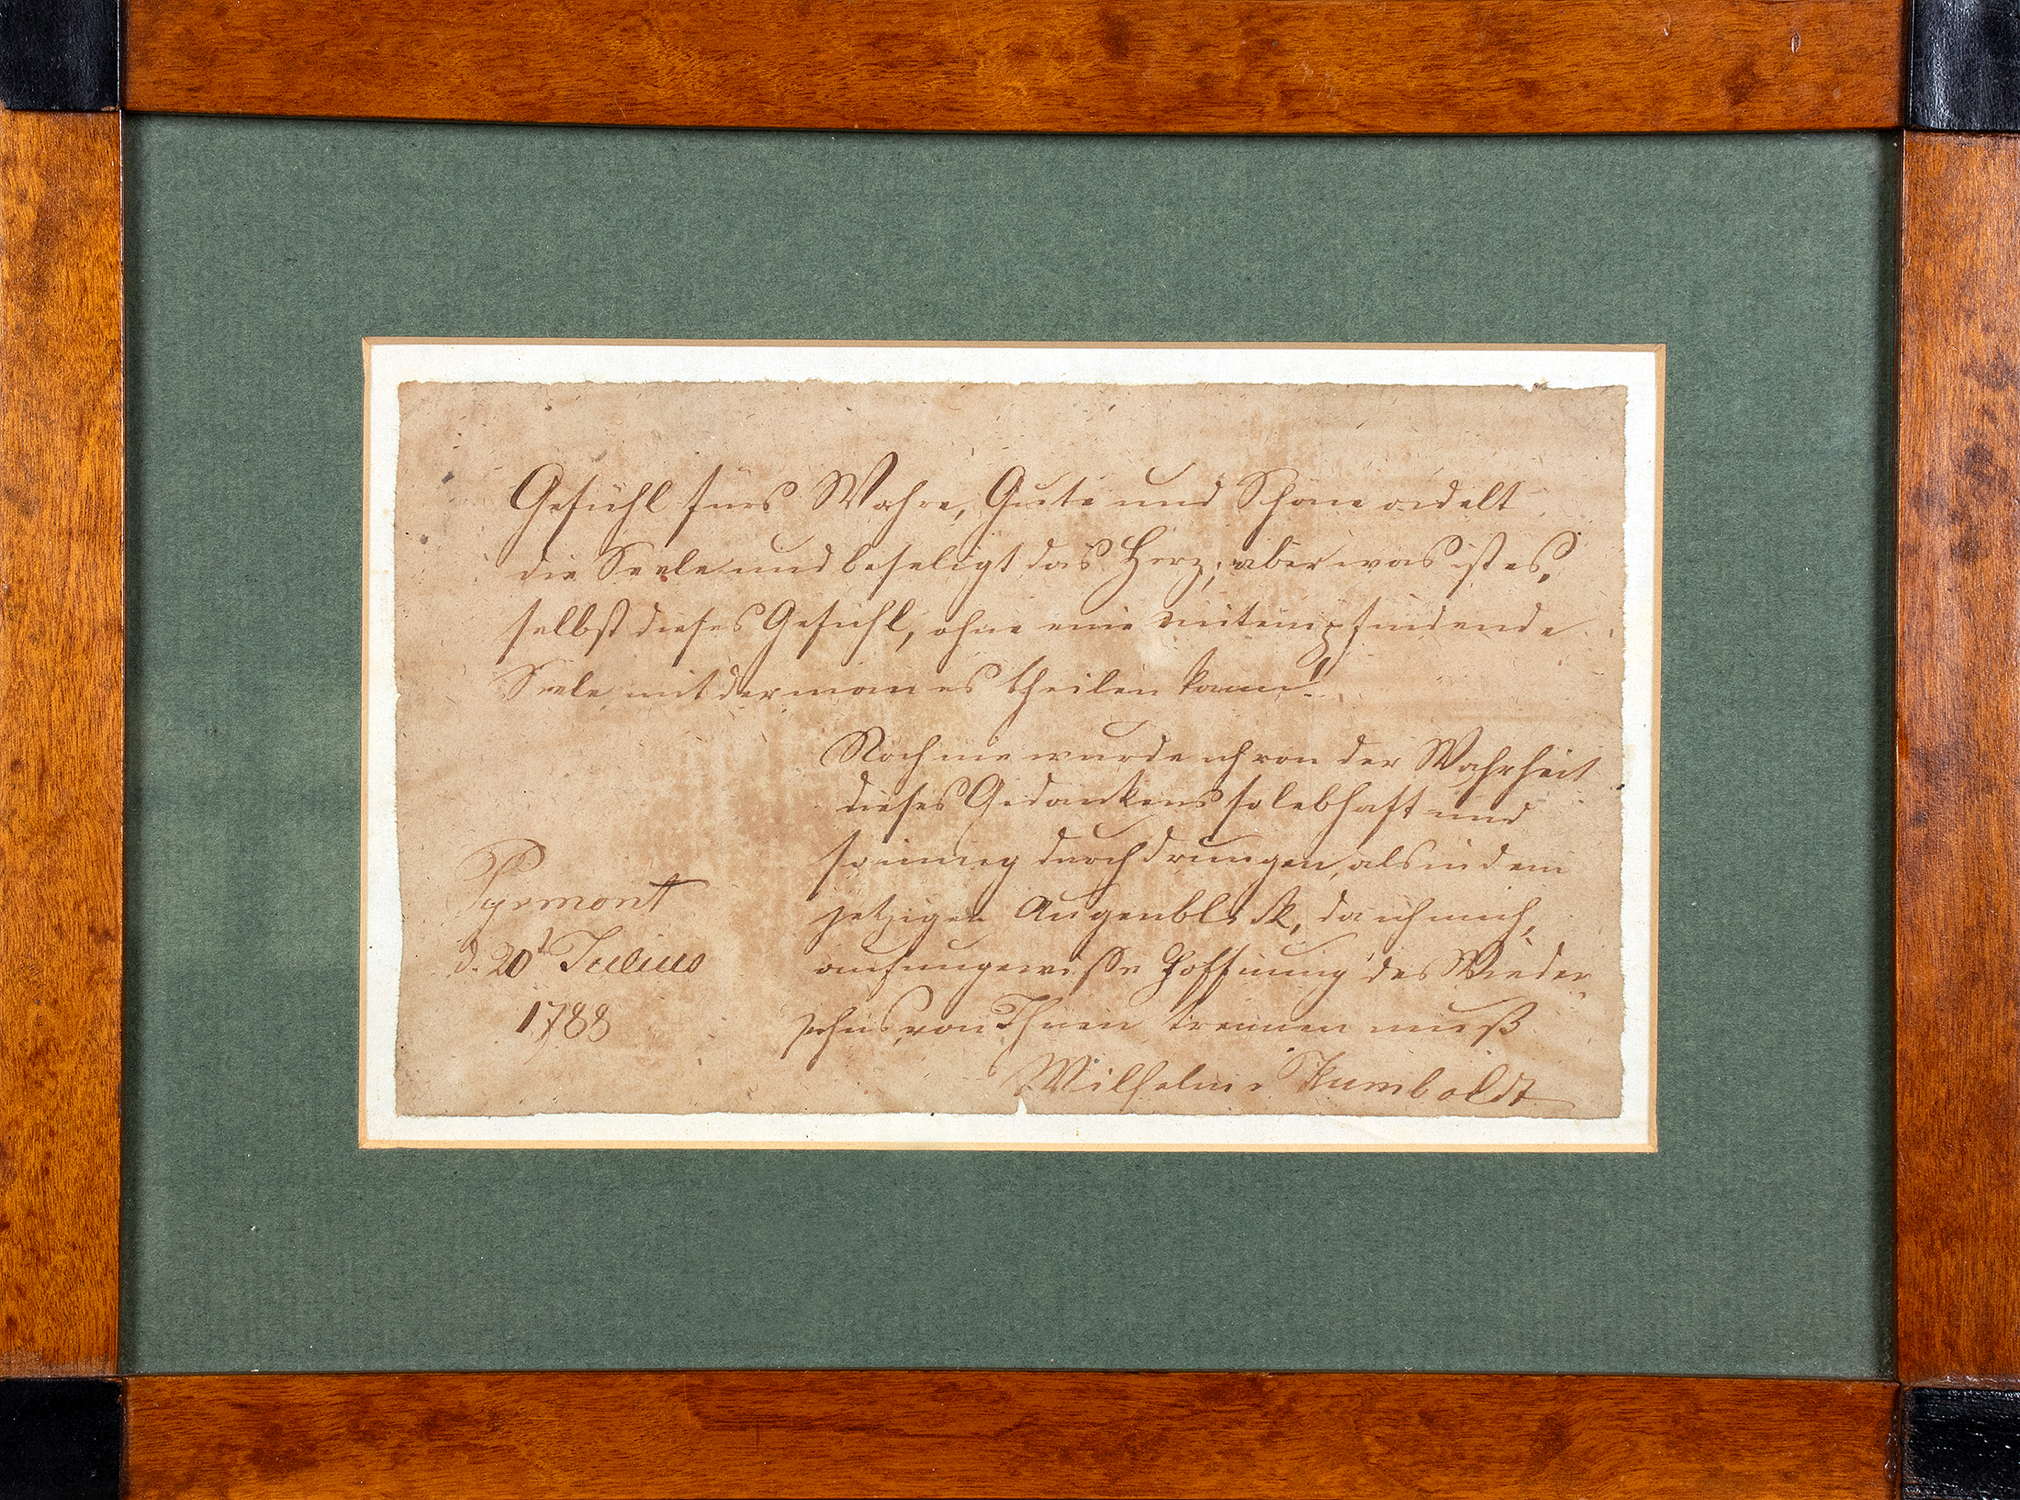 Gefühl fürs Wahre, Gute und Schöne adelt
die Seele und beseligt das Herz; aber was ist es,
selbst dieses Gefühl, ohne eine mitempfindende
Seele mit der man es theilen kann!
Noch nie wurde ich von der Wahrheit
dieses Gedankens so lebhaft und
so innig durchdrungen, als in dem
jetzigen Augenblikk, da ich mich,
auf ungewisse Hoffnung des Wieder
sehns, von Ihnen trennen muß
Pyrmont
d. 20t Julius
1788
Wilhelm Humboldt